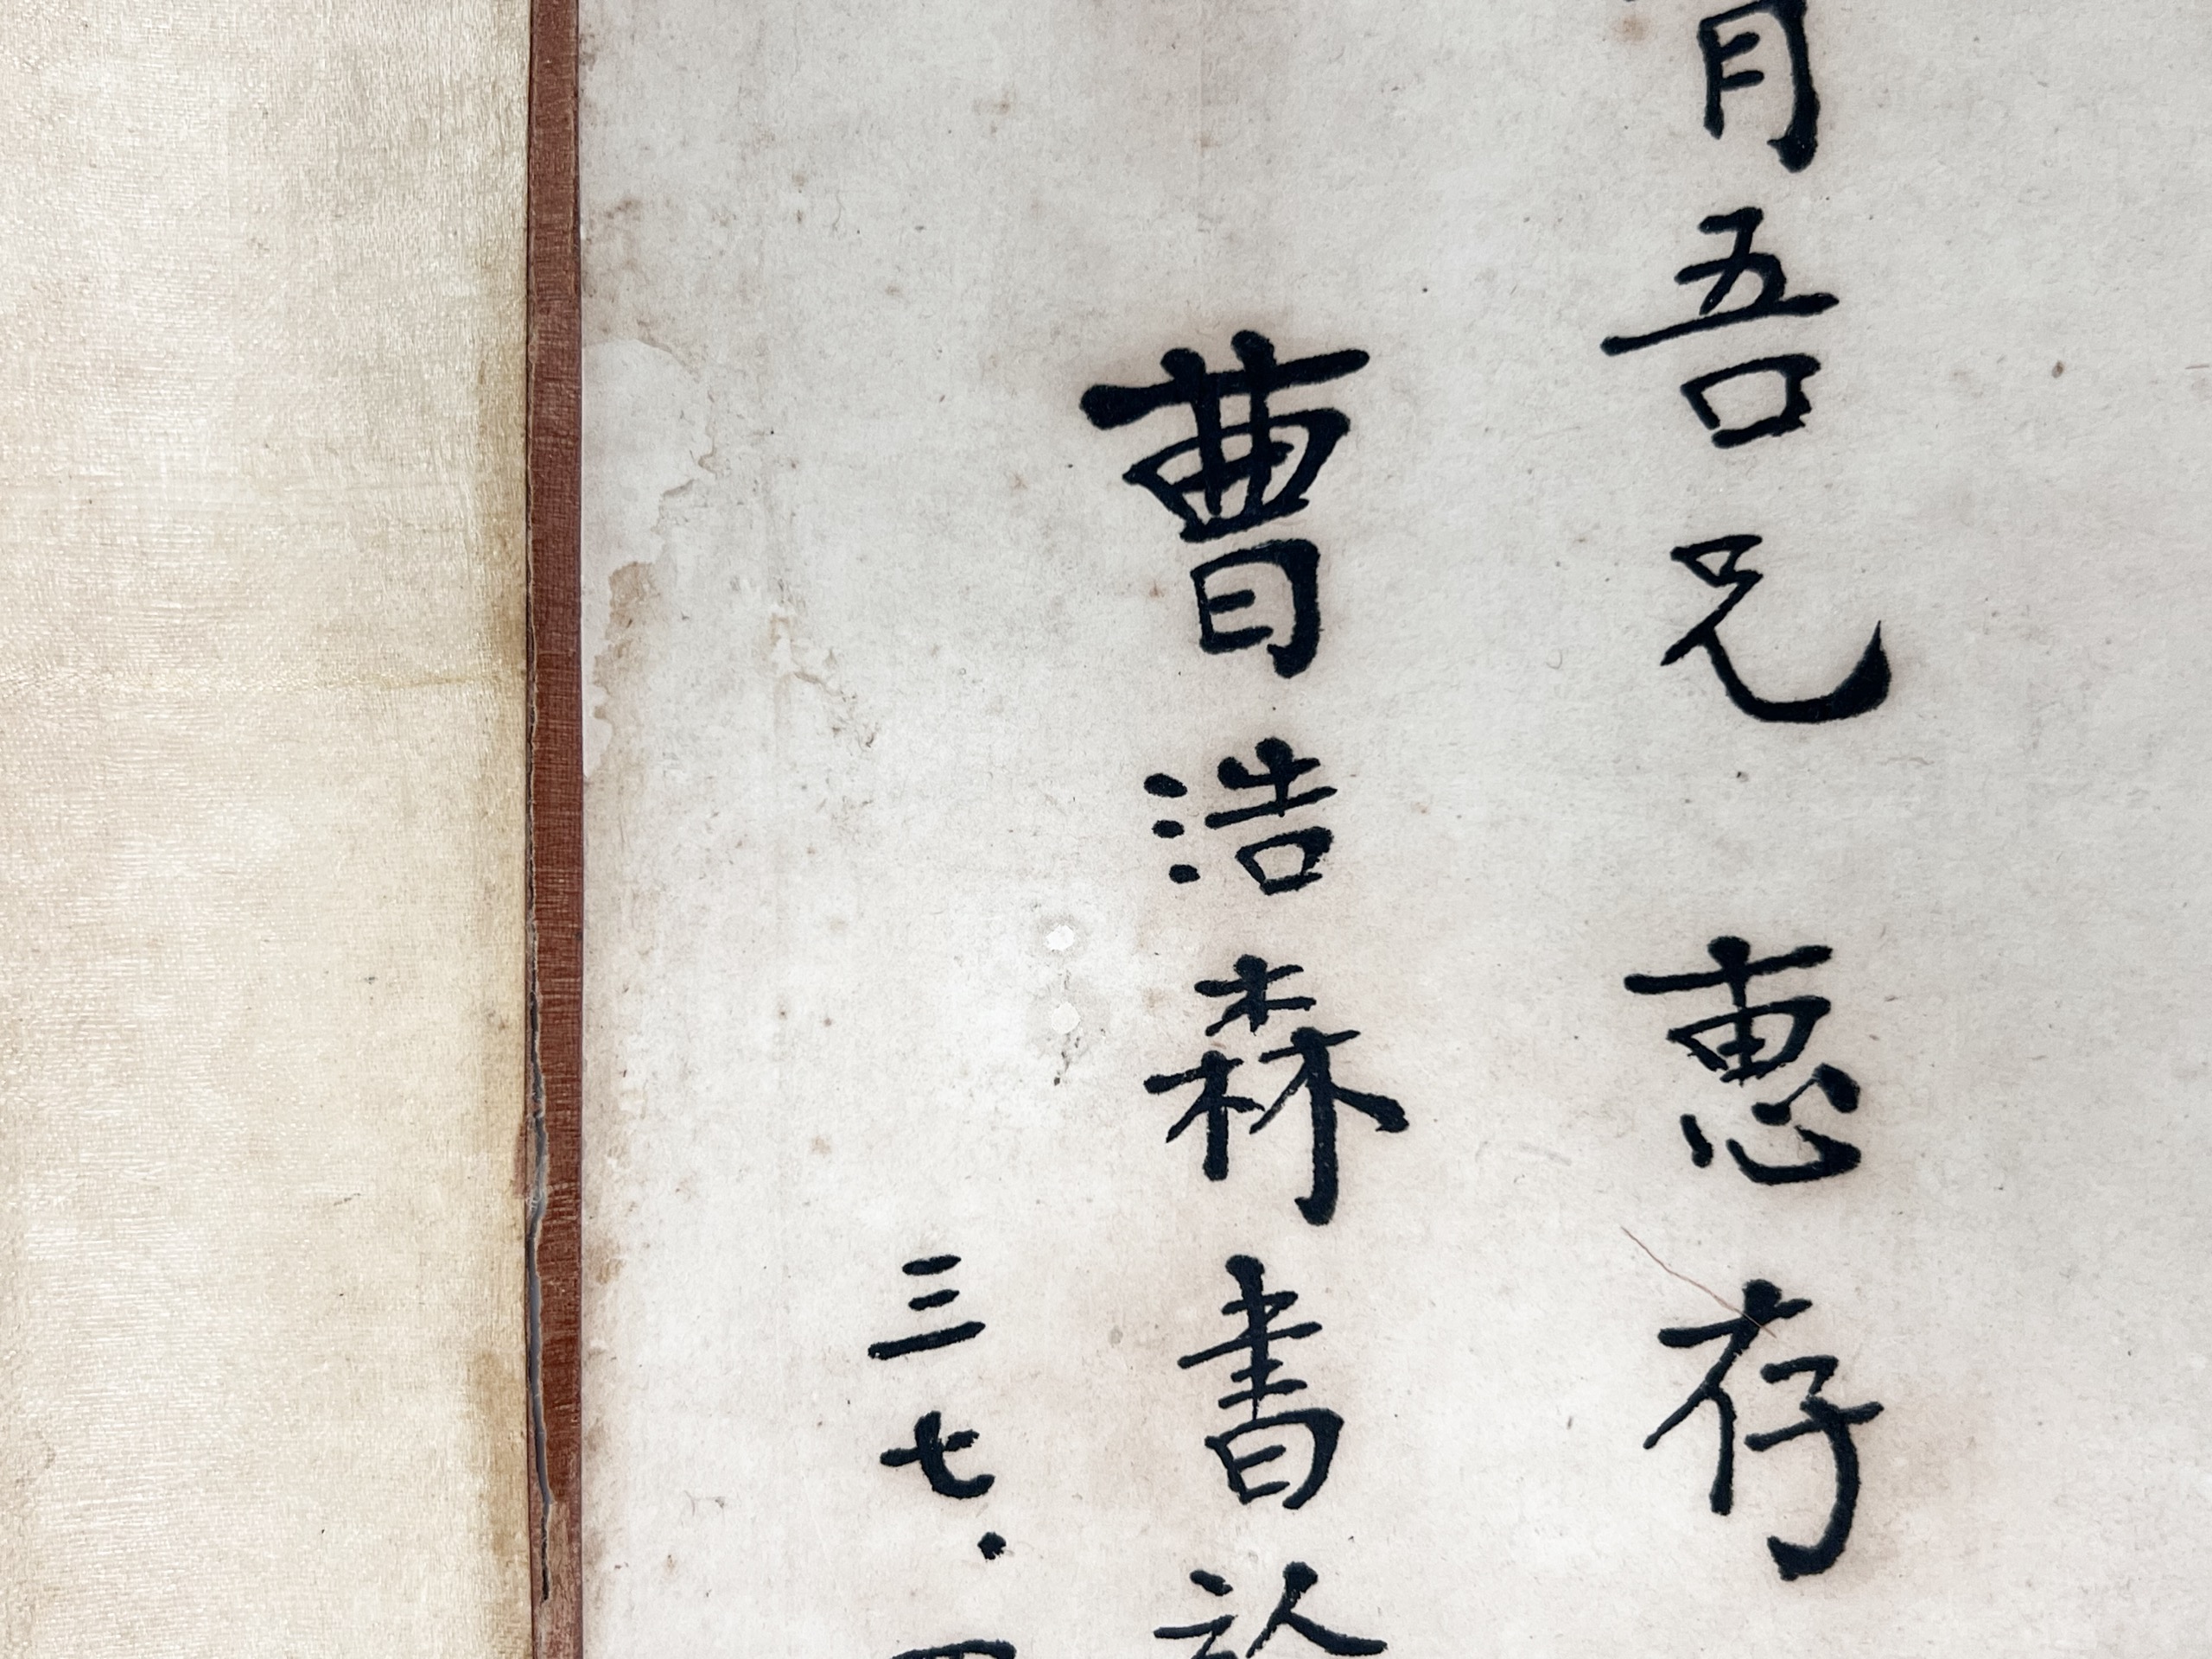 吾兄 惠存
曹浩森書於
三七.四